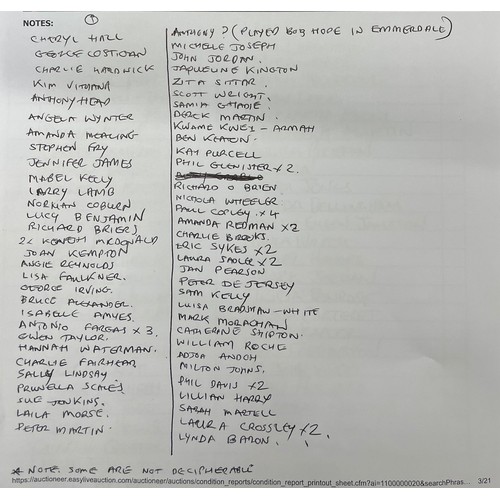 NOTES:
①
CHERYL HALL
GEORGE COSTIGAN
CHARLIE HARDWICK
KIM VITHANA
ANTHONY HEAD
ANGELA WYNTER
AMANDA MEALING
STEPHEN FRY
JENNIFER JAMES
MABEL KELLY
LARRY LAMB
NORMAN COBURN
LUCY BENJAMIN
RICHARD BRIERS
2X KENNETH MCDONALD
JOAN KEMPTON
ANGIE REYNOLDS
LISA FAULKNER.
GEORGE IRVING.
BRUCE ALEXANDER.
ISABELLE AMYES.
ANTONIO FARGAS X 3.
GWEN TAYLOR.
HANNAH WATERMAN.
CHARLIE FAIRHEAR
SALLY LINDSAY
PRUNELLA SCALES
SUE JENKINS.
LAILA MORSE.
PETER MARTIN.
ANTHONY? (PLAYED BOB HOPE IN EMMERDALE)
MICHELLE JOSEPH
JOHN JORDAN.
JAQUELINE KINGTON
ZITA SITTAR.
SCOTT WRIGHT.
SAMIA GHADIE.
DEREK MARTIN.
KWAME KWEI-ARMAH
BEN KEATON.
KAY PURCELL
PHIL GLENISTER X 2.
RICHARD O BRIEN.
NICHOLA WHEELER.
PAUL COPLEY X 4
AMANDA REDMAN X2
CHARLIE BROOKS.
ERIC SYKES X2
LAURA SADLER X2
JAN PEARSON
PETER DE JERSEY
SAM KELLY
LUISA BRADSHAW-WHITE
MARK MORAGHAN
CATHERINE SHIPTON.
WILLIAM ROCHE
ADJOA ANDOH
MILTON JOHNS.
PHIL DAVIS X2
LILLIAN HARRY
SARAH MARTELL
LAURA CROSSLEY X2.
LYNDA BARON.
* NOTE. SOME ARE NOT DECIPHERABLE
https://auctioneer.easyliveauction.com/auctioneer/auctions/condition_reports/condition_report_printout_sheet.cfm?ai=1100000020&searchPhras... 3/21